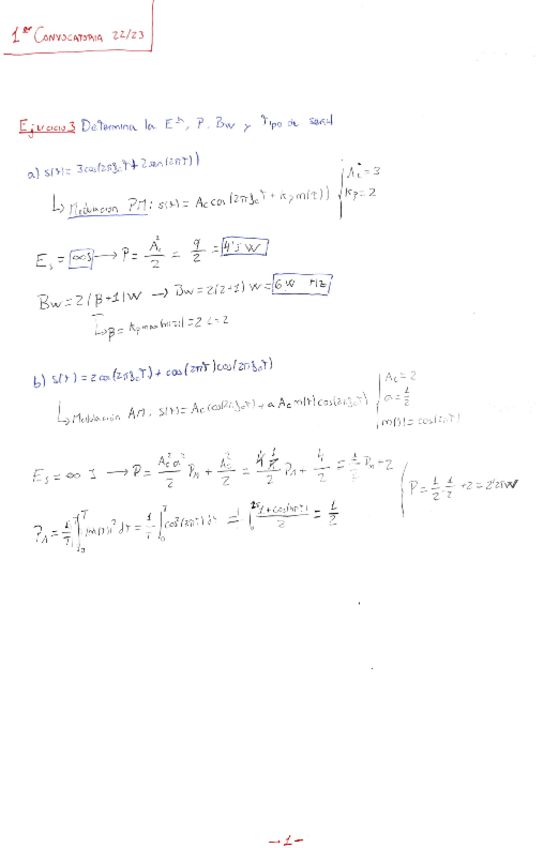 1ª CONVOCATORIA 22/23
Ejercicio 3 Determina la Eª, P, Bw y Tipo de señal
a) s(t) = 3cos(2πfcT + 2sen(2πT))
↳ Modulación PM: s(t) = Ac cos(2πfcT + Kp m(t))
Ac = 3
Kp = 2
Es = ∞J → P = Ac²/2 = 9/2 = 4'5 W
Bw = 2(β+1)W → Bw = 2(2+1)W = 6W Hz
↳ β = Kp max|m(t)| = 2
b) s(t) = 2cos(2πfcT) + cos(2πT)cos(2πfcT)
↳ Modulación AM: s(t) = Ac cos(2πfcT) + a Ac m(t) cos(2πfcT)
Ac = 2
a = 1/2
m(t) = cos(2πT)
Es = ∞ J → P = Ac² a²/2 Pn + Ac²/2 = Pn + 4/2 = 1/2 Pn + 2
P = 1/2 · 1/2 + 2 = 2'25W
= 1/T ∫ |m(t)|² dT = 1/T ∫ cos²(2πT) dT = = 1/2
-1-